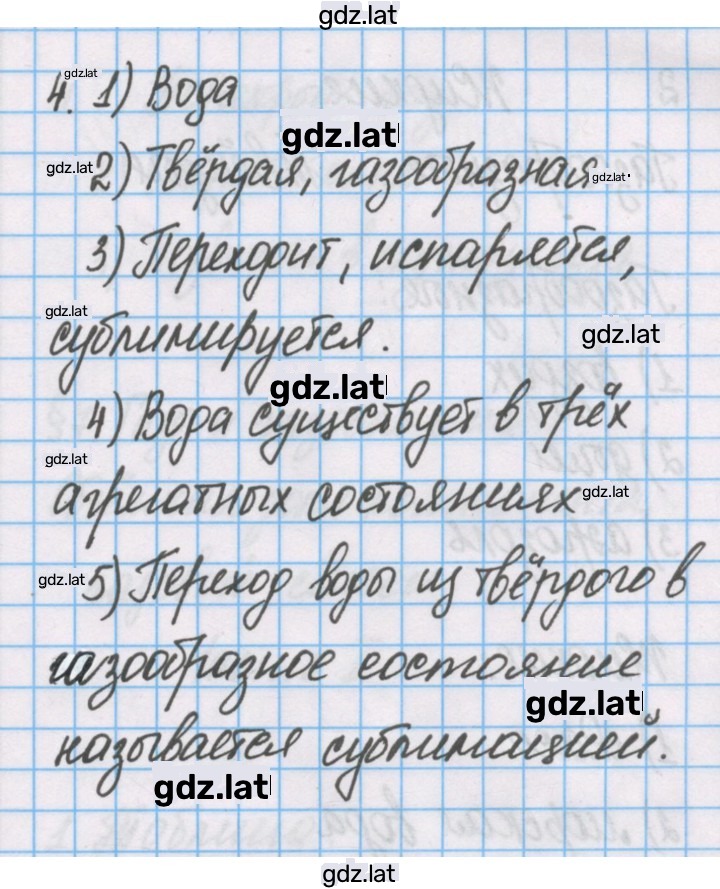 gdz.lat
gdz.lat
4. 1) Вода
gdz.lat
gdz.lat 2) Твёрдая, газообразная. gdz.lat
3) Переходит, испаряется,
gdz.lat
сублимируется.
gdz.lat
gdz.lat
4) Вода существует в трёх
gdz.lat
агрегатных состояниях gdz.lat
gdz.lat 5) Переход воды из твёрдого в
газообразное состояние
gdz.lat
называется сублимацией.
gdz.lat
gdz.lat